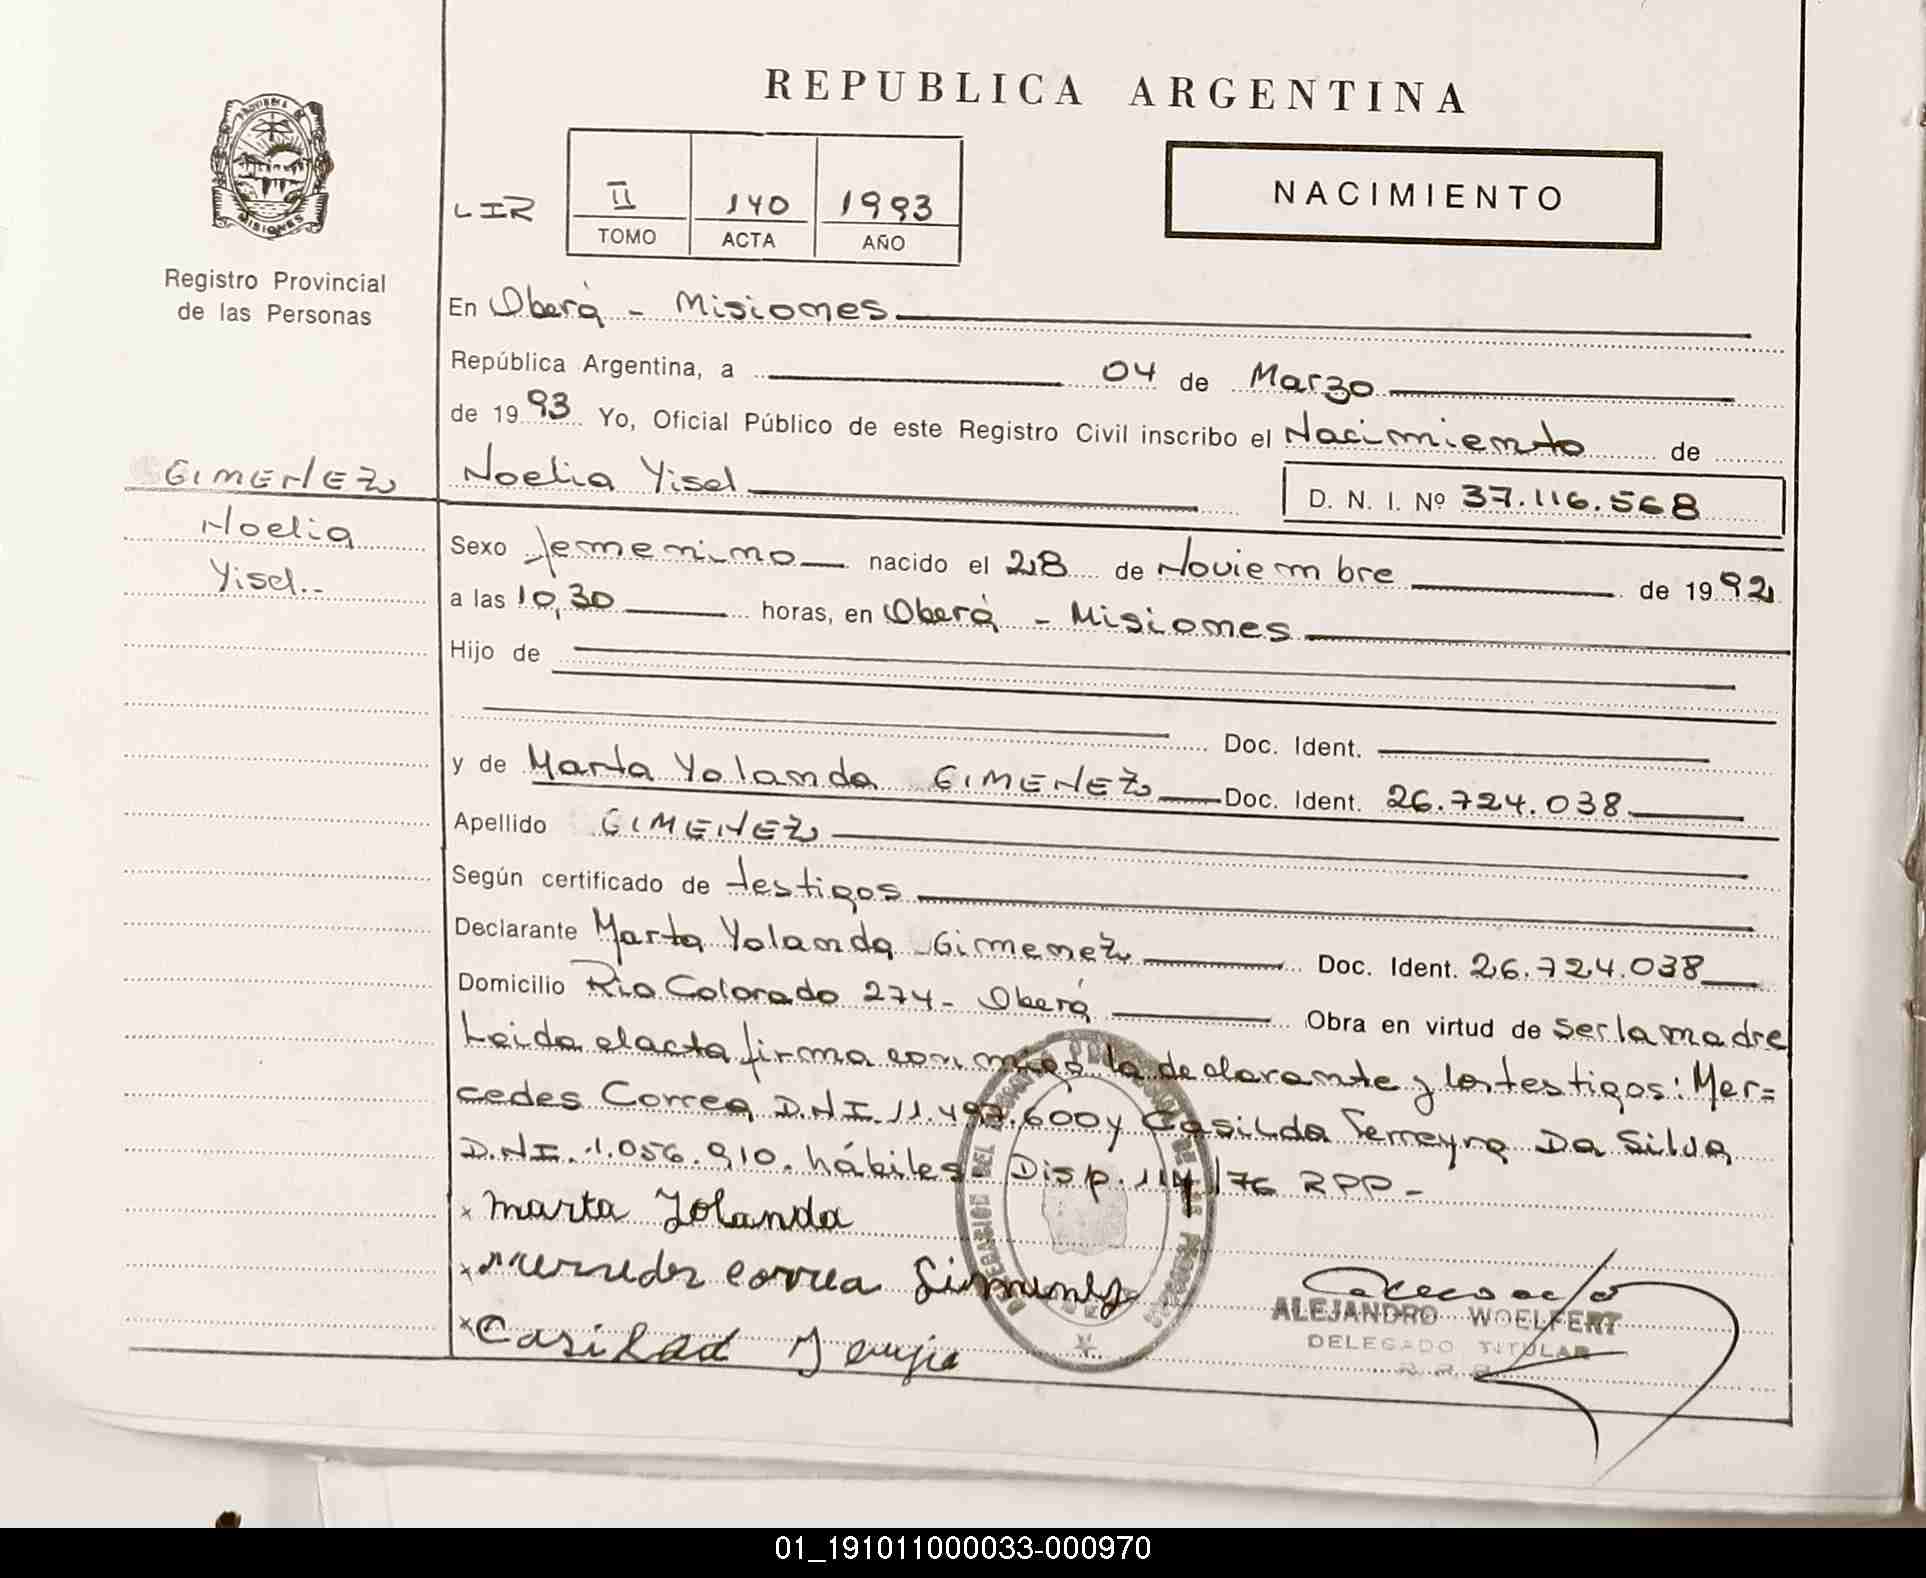 REPUBLICA ARGENTINA
NACIMIENTO
LIR
II 140 1993
TOMO ACTA AÑO
PROVINCIA DE
MISIONES
Registro Provincial
de las Personas
GIMENEZ
Noelia
Yisel..
En Oberá - Misiones
República Argentina, a 04 de Marzo
de 1993 Yo, Oficial Público de este Registro Civil inscribo el Nacimiento de
Noelia Yisel D. N. I. Nº 37.116.568
Sexo femenino nacido el 28 de Noviembre de 1992
a las 10,30 horas, en Oberá - Misiones
Hijo de
Doc. Ident.
y de Marta Yolanda GIMENEZ Doc. Ident. 26.724.038
Apellido GIMENEZ
Según certificado de testigos
Declarante Marta Yolanda Gimenez Doc. Ident. 26.724.038
Domicilio Rio Colorado 274- Oberá Obra en virtud de ser la madre
Leida el acta firma con migo la declarante y los testigos: Mer=
cedes Correa D.N.I. 11.497.600 y Casilda Ferreyra Da Silva
D.N.I. 1.056.910. hábiles Disp. 114/76 RPP-
x Marta Yolanda
x Mercedes correa Gimenez
x Casilda
DELEGACION DEL
ALEJANDRO WOELFERT
DELEGADO TITULAR
01_191011000033-000970